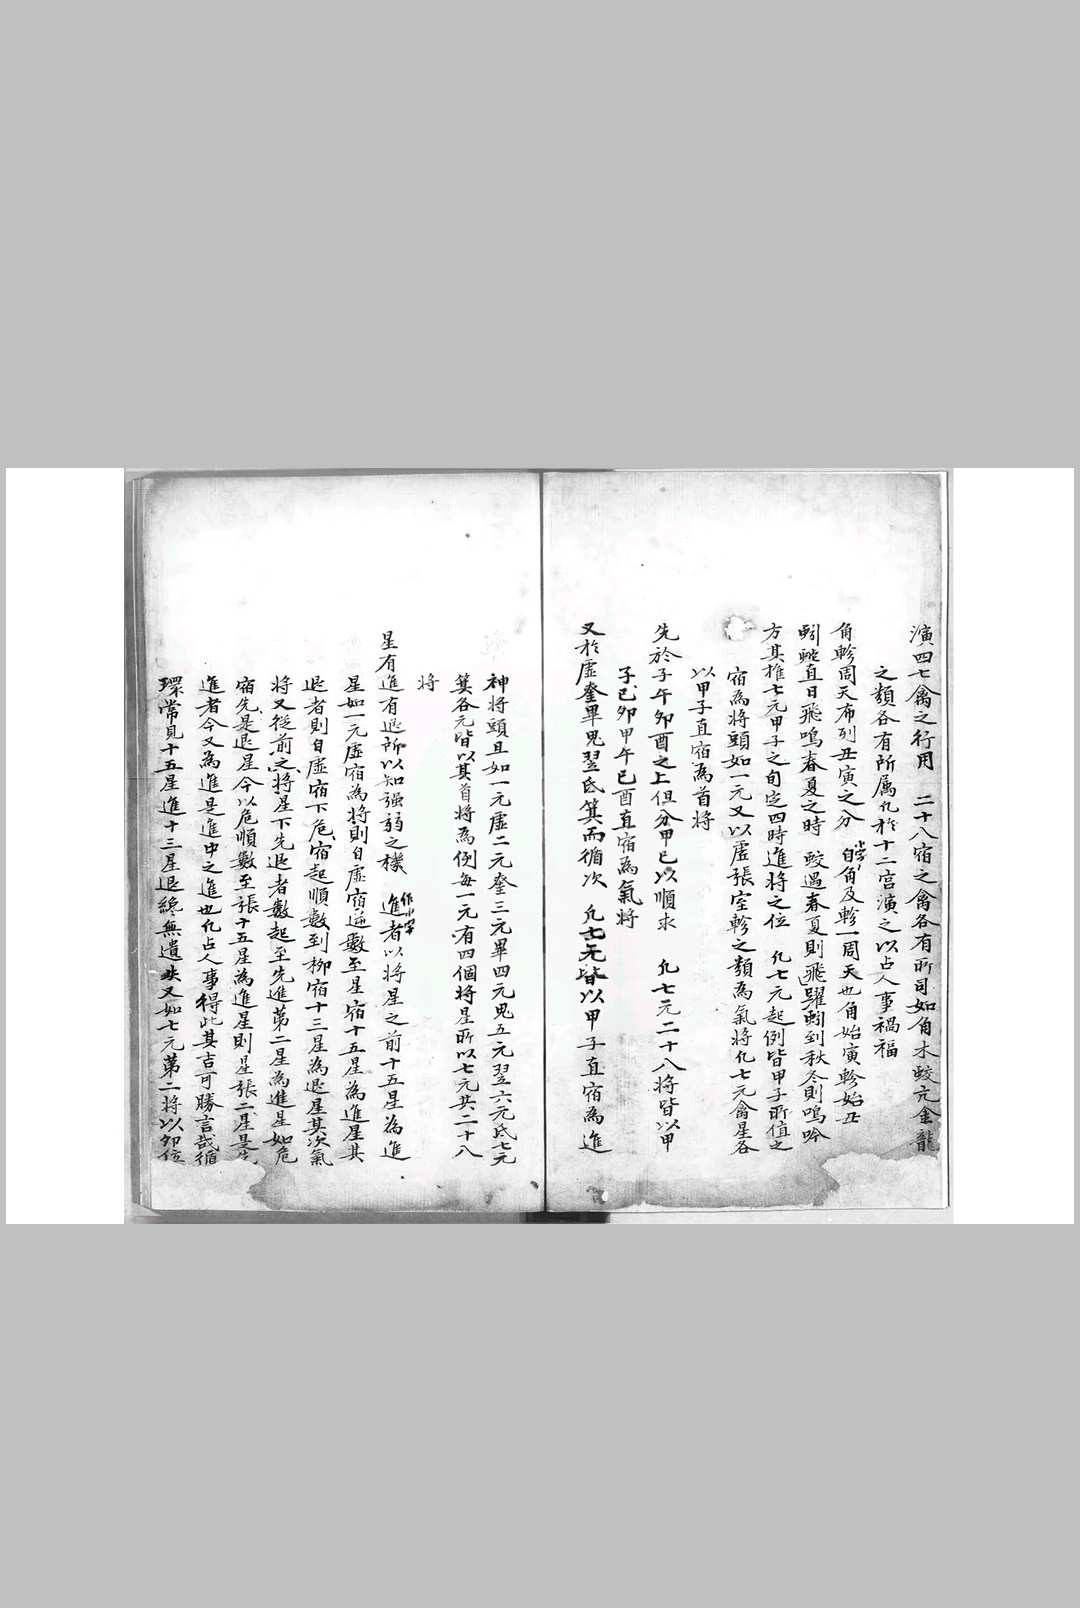 演四七禽之行用　二十八宿之禽各有所司如角木蛟亢金龍
之類各有所属凢於十二宮演之以占人事禍福
角軫周天布列丑寅之分　小字　自角及軫一周天也角始寅軫始丑
蚓蛟直日飛鳴春夏之時　蛟遇春夏則飛躍蚓到秋冬則鳴吟
方其推七元甲子之旬定四時進将之位　凢七元起例皆甲子所值之
宿為将頭如一元又以虛張室軫之類為氣将凢七元禽星各
以甲子直宿為首将
先於子午卯酉之上但分甲巳以順求　凢七元二十八将皆以甲
子巳卯甲午巳酉直宿為氣将
又於虛奎畢鬼翌氐箕而循次　凢七元皆以甲子直宿為進
神将頭且如一元虛二元奎三元畢四元鬼五元翌六元氐七元
箕各元皆以其首将為例每一元有四個将星所以七元共二十八
将
星有進有退所以知强弱之機　作小字　進者以将星之前十五星為進
星如一元虛宿為将則自虛宿逆數至星宿十五星為進星其
退者則自虛宿下危宿起順數到柳宿十三星為退星其次氣
将又從前之将星下先退者數起至先進第二星為進星如危
宿先是退星今以危順數至張十五星為進星則星張二星是先
進者今又為進是進中之進也凢占人事得此其吉可勝言哉循
環常見十五星進十三星退纔無遺失又如七元第二将以卯位